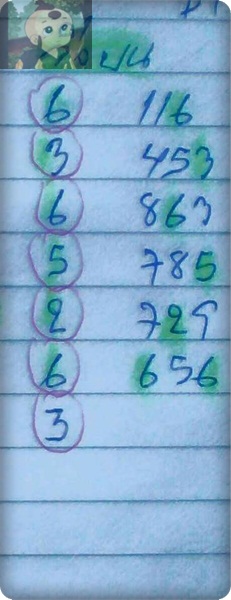 6 116
3 453
6 863
5 785
2 729
6 656
3